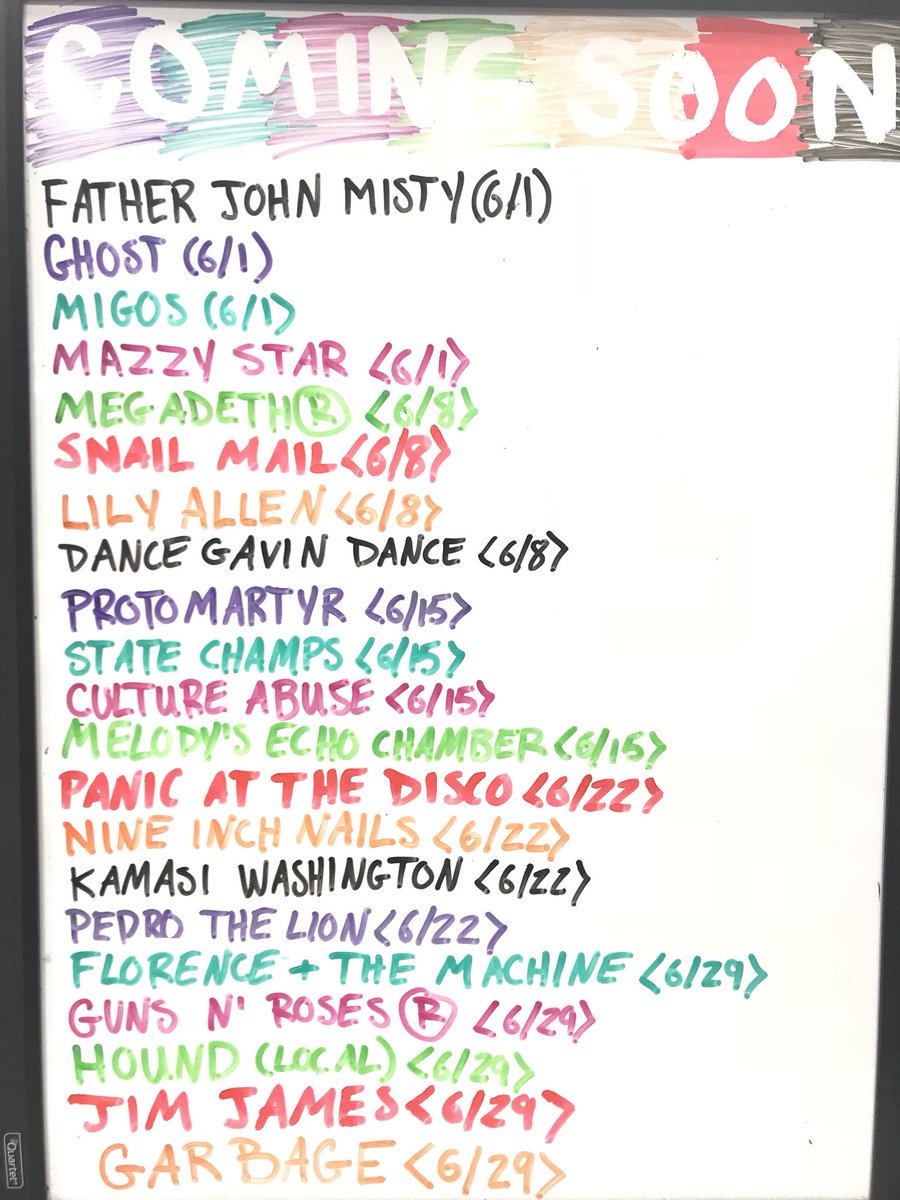 COMING SOON
FATHER JOHN MISTY (6/1)
GHOST (6/1)
MIGOS (6/1>
MAZZY STAR <6/1>
MEGADETH® <6/8>
SNAIL MAIL <6/8>
LILY ALLEN <6/8>
DANCE GAVIN DANCE <6/8>
PROTOMARTYR <6/15>
STATE CHAMPS <6/15>
CULTURE ABUSE <6/15>
MELODY'S ECHO CHAMBER <6/15>
PANIC AT THE DISCO <6/22>
NINE INCH NAILS <6/22>
KAMASI WASHINGTON <6/22>
PEDRO THE LION <6/22>
FLORENCE + THE MACHINE <6/29>
GUNS N' ROSES ® <6/29>
HOUND (LOCAL) <6/29>
JIM JAMES <6/29>
GARBAGE <6/29>
Quartet®